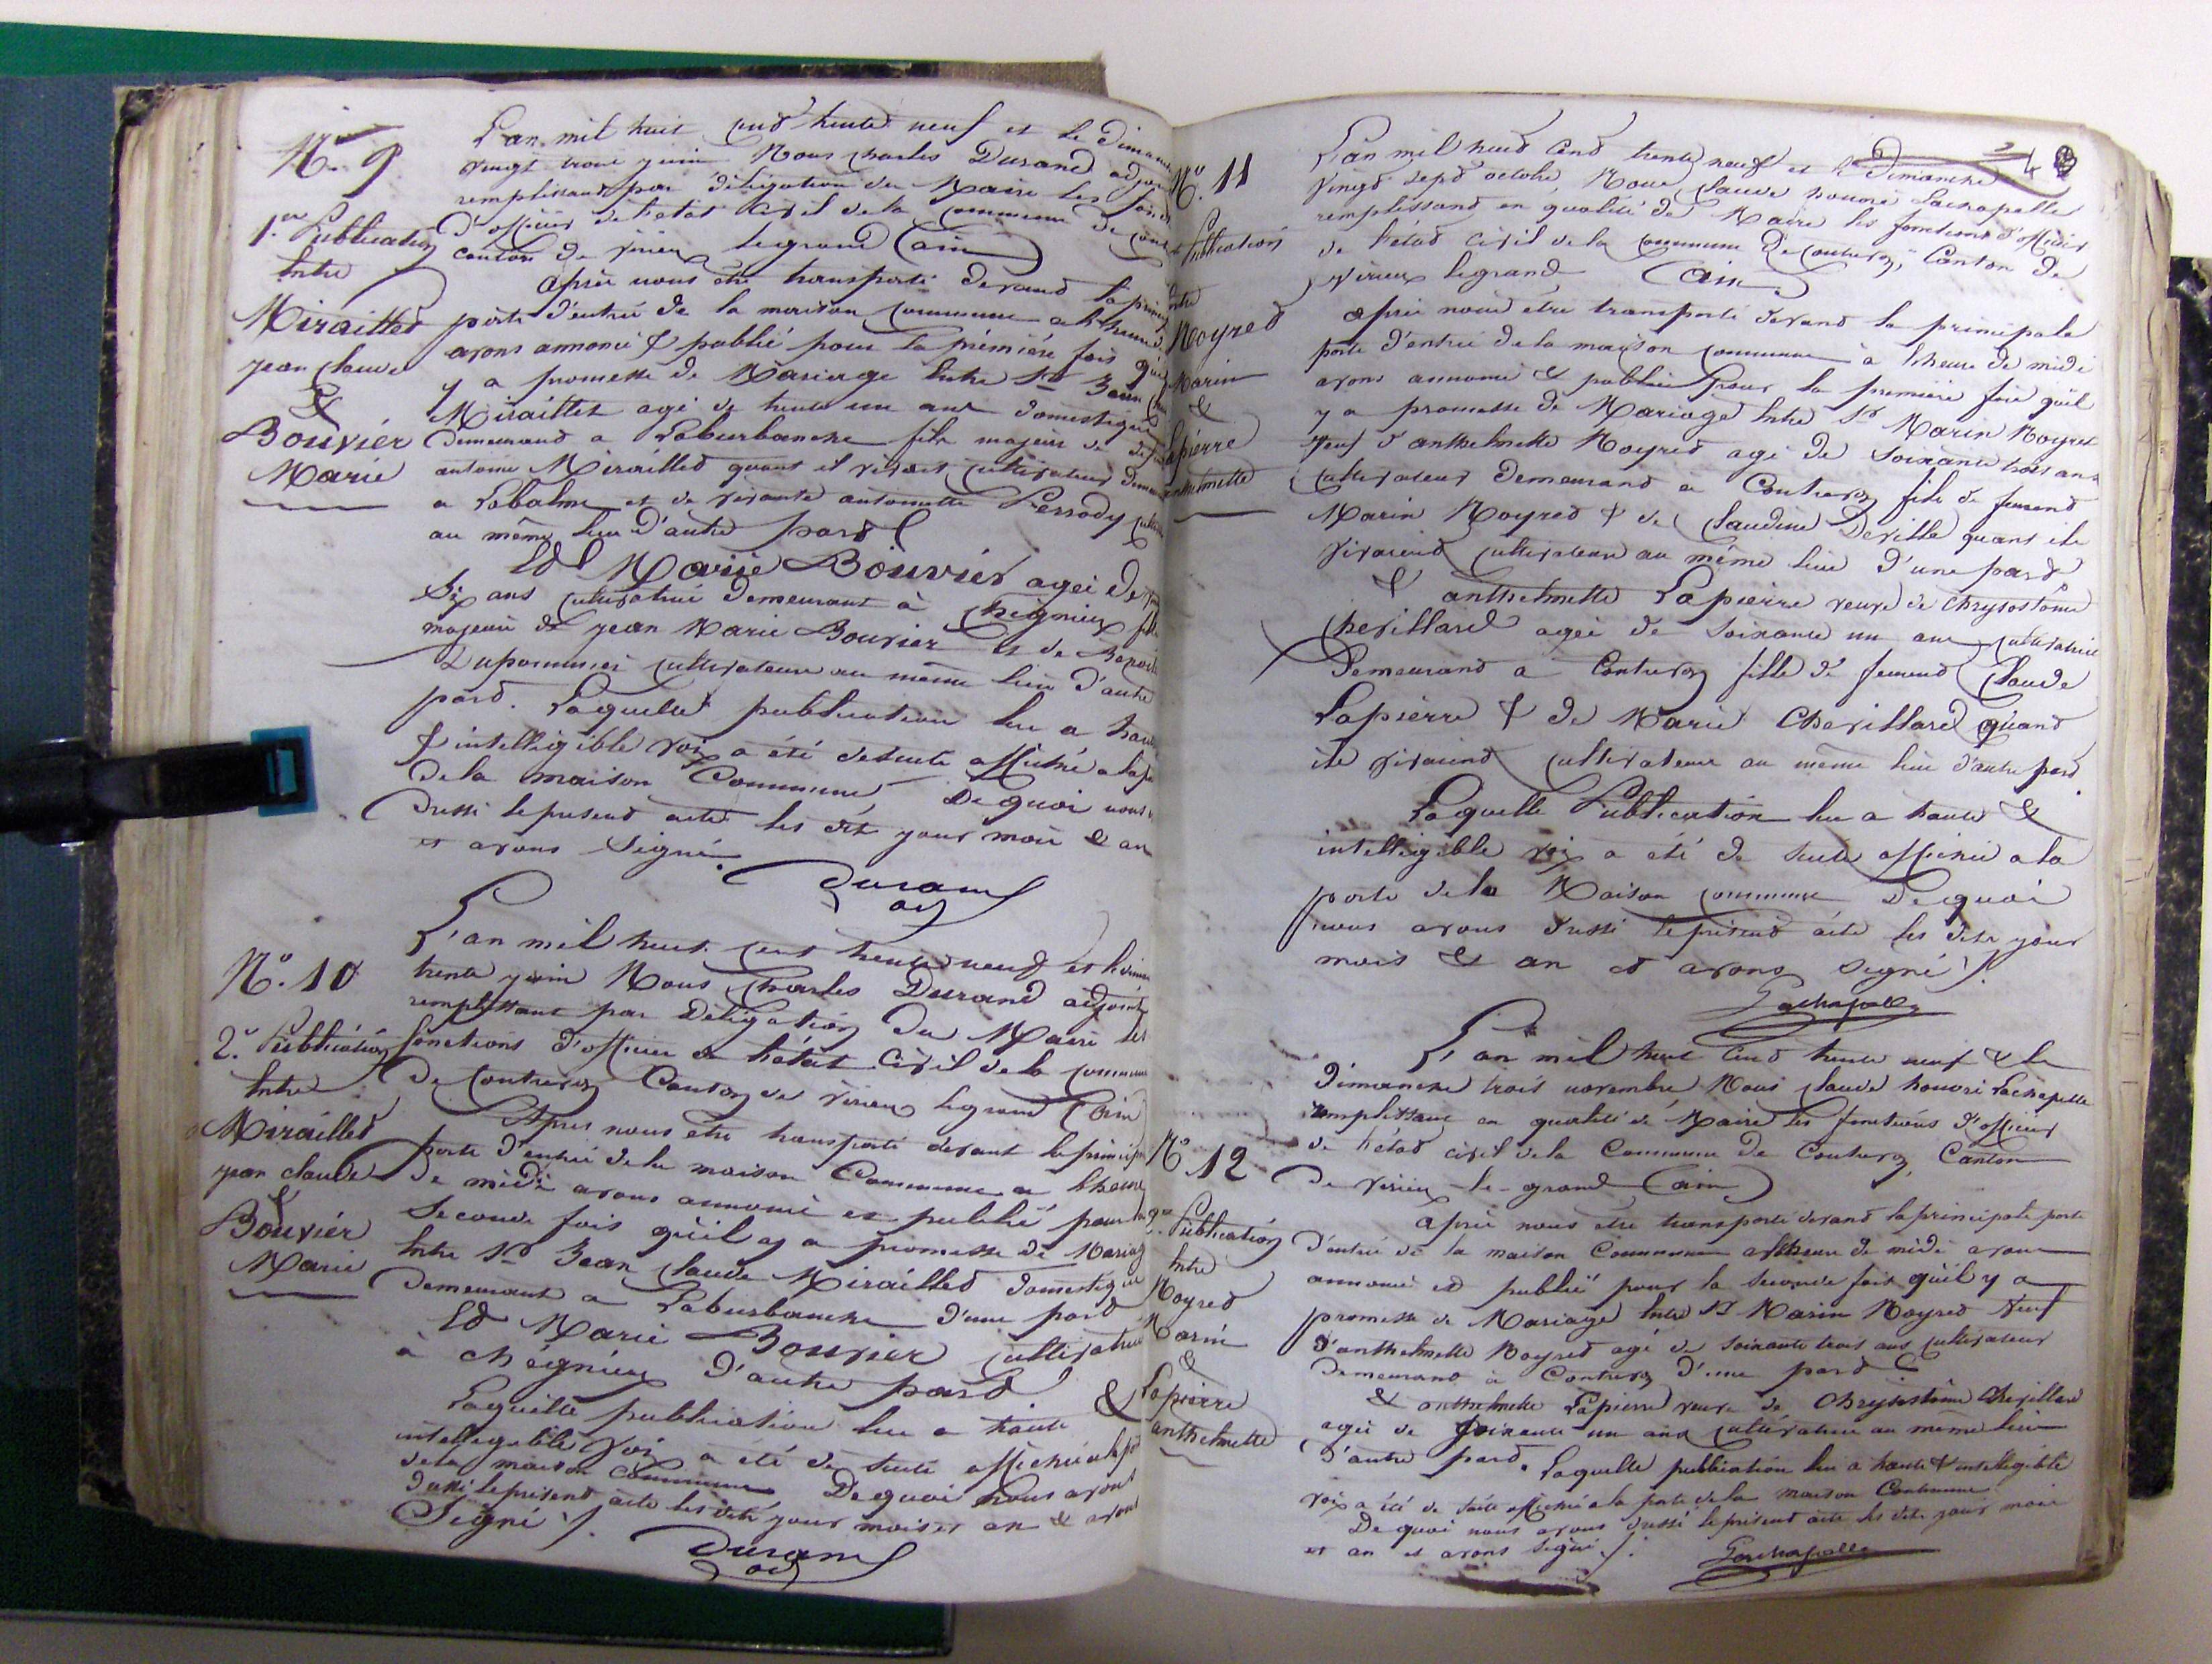 N.° 9
1.ere Publication
Entre
Miraillet
jean claude
&
Bouvier
Marie
L'an mil huit cent trente neuf et le Dimanche
vingt trois juin Nous charles Durand adjoint
remplissant par déligation du Maire les fonct
D'officier de l'etat civil de la commune de cont
canton de virieu legrand (ain)
après nous être transporté devand la princip
porte d'entré de la maison commune a lheure d
avons annoncé & publié pour la première fois qu'il
y a promesse de Mariage Entre Sr. Jean Clau
Miraillet agé de trente un ans domestique
Demeurand a Laburbanche fils majeur de def
antoine Miraillet quant il vivait cultivateur demeu
a Labalme et de vivante antoinette Perrody cultiv
au même lieu D'autre part
Et Marie Bouvier agée de
Six ans cultivatrice Demeurant à Chégnieu fille
majeure de jean Marie Bouvier et de Benoite
Dupommier cultivateurs au même lieu d'autre
pard. Laquelle publication lue a haut
& intelligible voix a été desuite affiché a la po
De la maison Commune De quoi nous
Dressé le présend acte les dit jour mois & an
et avons Signé
Durand
adj
N.° 10
2.e Publication
Entre
Miraillet
jean claude
&
Bouvier
Marie
L'an mil huit cent trente neuf et le dim
trente juin Nous Charles Durand adjoint
remplissant par Déligation Du Maire les
fonctions d'officier de l'état Civil de la commune
De Contrevoz Canton de virieu legrand (ain)
Apres nous être transporté devant la princip
porte d'entré de la maison Commune a lheure
De midi avons annoncé et publié pour la
Seconde fois qu'il y a promesse de Mariag
Entre Sr. Jean Claude Miraillet domestique
Demeurant a Laburbanche d'une part
Et Marie Bouvier cultivatrice
à chégnieu D'autre part
Laquelle publication lue a haute &
intelligible voix a été de suite affiché a la po
de la maison Commune De quoi Nous avons
Dressé le présend acte les dits jour mois et an & avons
Signé ./.
Durand
adj
4
N.° 11
Publication
Entre
Noyret
Marin
&
Lapierre
anthelmette
L'an mil huit cent trente neuf et le Dimanche
Vingt sept octobre, Nous Claude honoré Lachapelle
remplissant en qualité de Maire les fonctions d'officier
de l'etat civil de la commune de contrevoz, Canton de
virieu legrand (ain)
après nous être transporté devand la principale
porte d'entrée de la maison commune à l'heure de midi
avons annoncé & publié pour la première fois qu'il
y a promesse de Mariage Entre Sr. Marin Noyret
veuf d'anthelmette Noyret agé de soixante trois ans
cultivateur Demeurand a Contrevoz fils de feuend
Marin Noyret & de Claudine Deville quant ils
vivaient cultivateurs au même lieu D'une part
& anthelmette Lapierre veuve de chrysostôme
Chevillard agée de soixante un ans cultivatrice
Demeurand a Contrevoz fille de feuend Claude
Lapierre & de Marie Chevillard quand
ils vivaient cultivateurs au même lieu d'autre part.
Laquelle Publication lue a haute &
intelligible voix a été de suite affiché a la
porte de la Maison commune De quoi
nous avons dressé le présend acte les dits jour
mois & an et avons signé ./.
Lachapelle
N.° 12
2.me Publication
Entre
Noyret
Marin
&
Lapierre
anthelmette
L'an mil huit cent trente neuf & le
Dimanche trois novembre Nous claude honoré Lachapelle
remplissant en qualité de Maire les fonctions d'officier
de l'état civil de la Commune De Contrevoz, Canton
De virieu-le-grand (ain)
après nous être transporté devand la principale porte
D'entrée de la maison Commune a lheure de midi avons
annoncé et publié pour la seconde fois qu'il y a
promesse de Mariage Entre Sr. Marin Noyret veuf
d'anthelmette Noyret agé de soixante trois ans cultivateur
Demeurand à Contrevoz D'une part
& anthelmette Lapierre veuve de Chrysostôme Chevillard
agée de soixante un ans cultivatrice au même lieu
D'autre pard. Laquelle publication lue a haute & intelligible
voix a été de suite affiché a la porte de la maison Commune
De quoi nous avons dressé le présend acte les dits jour mois
et an et avons signé ./.
Lachapelle